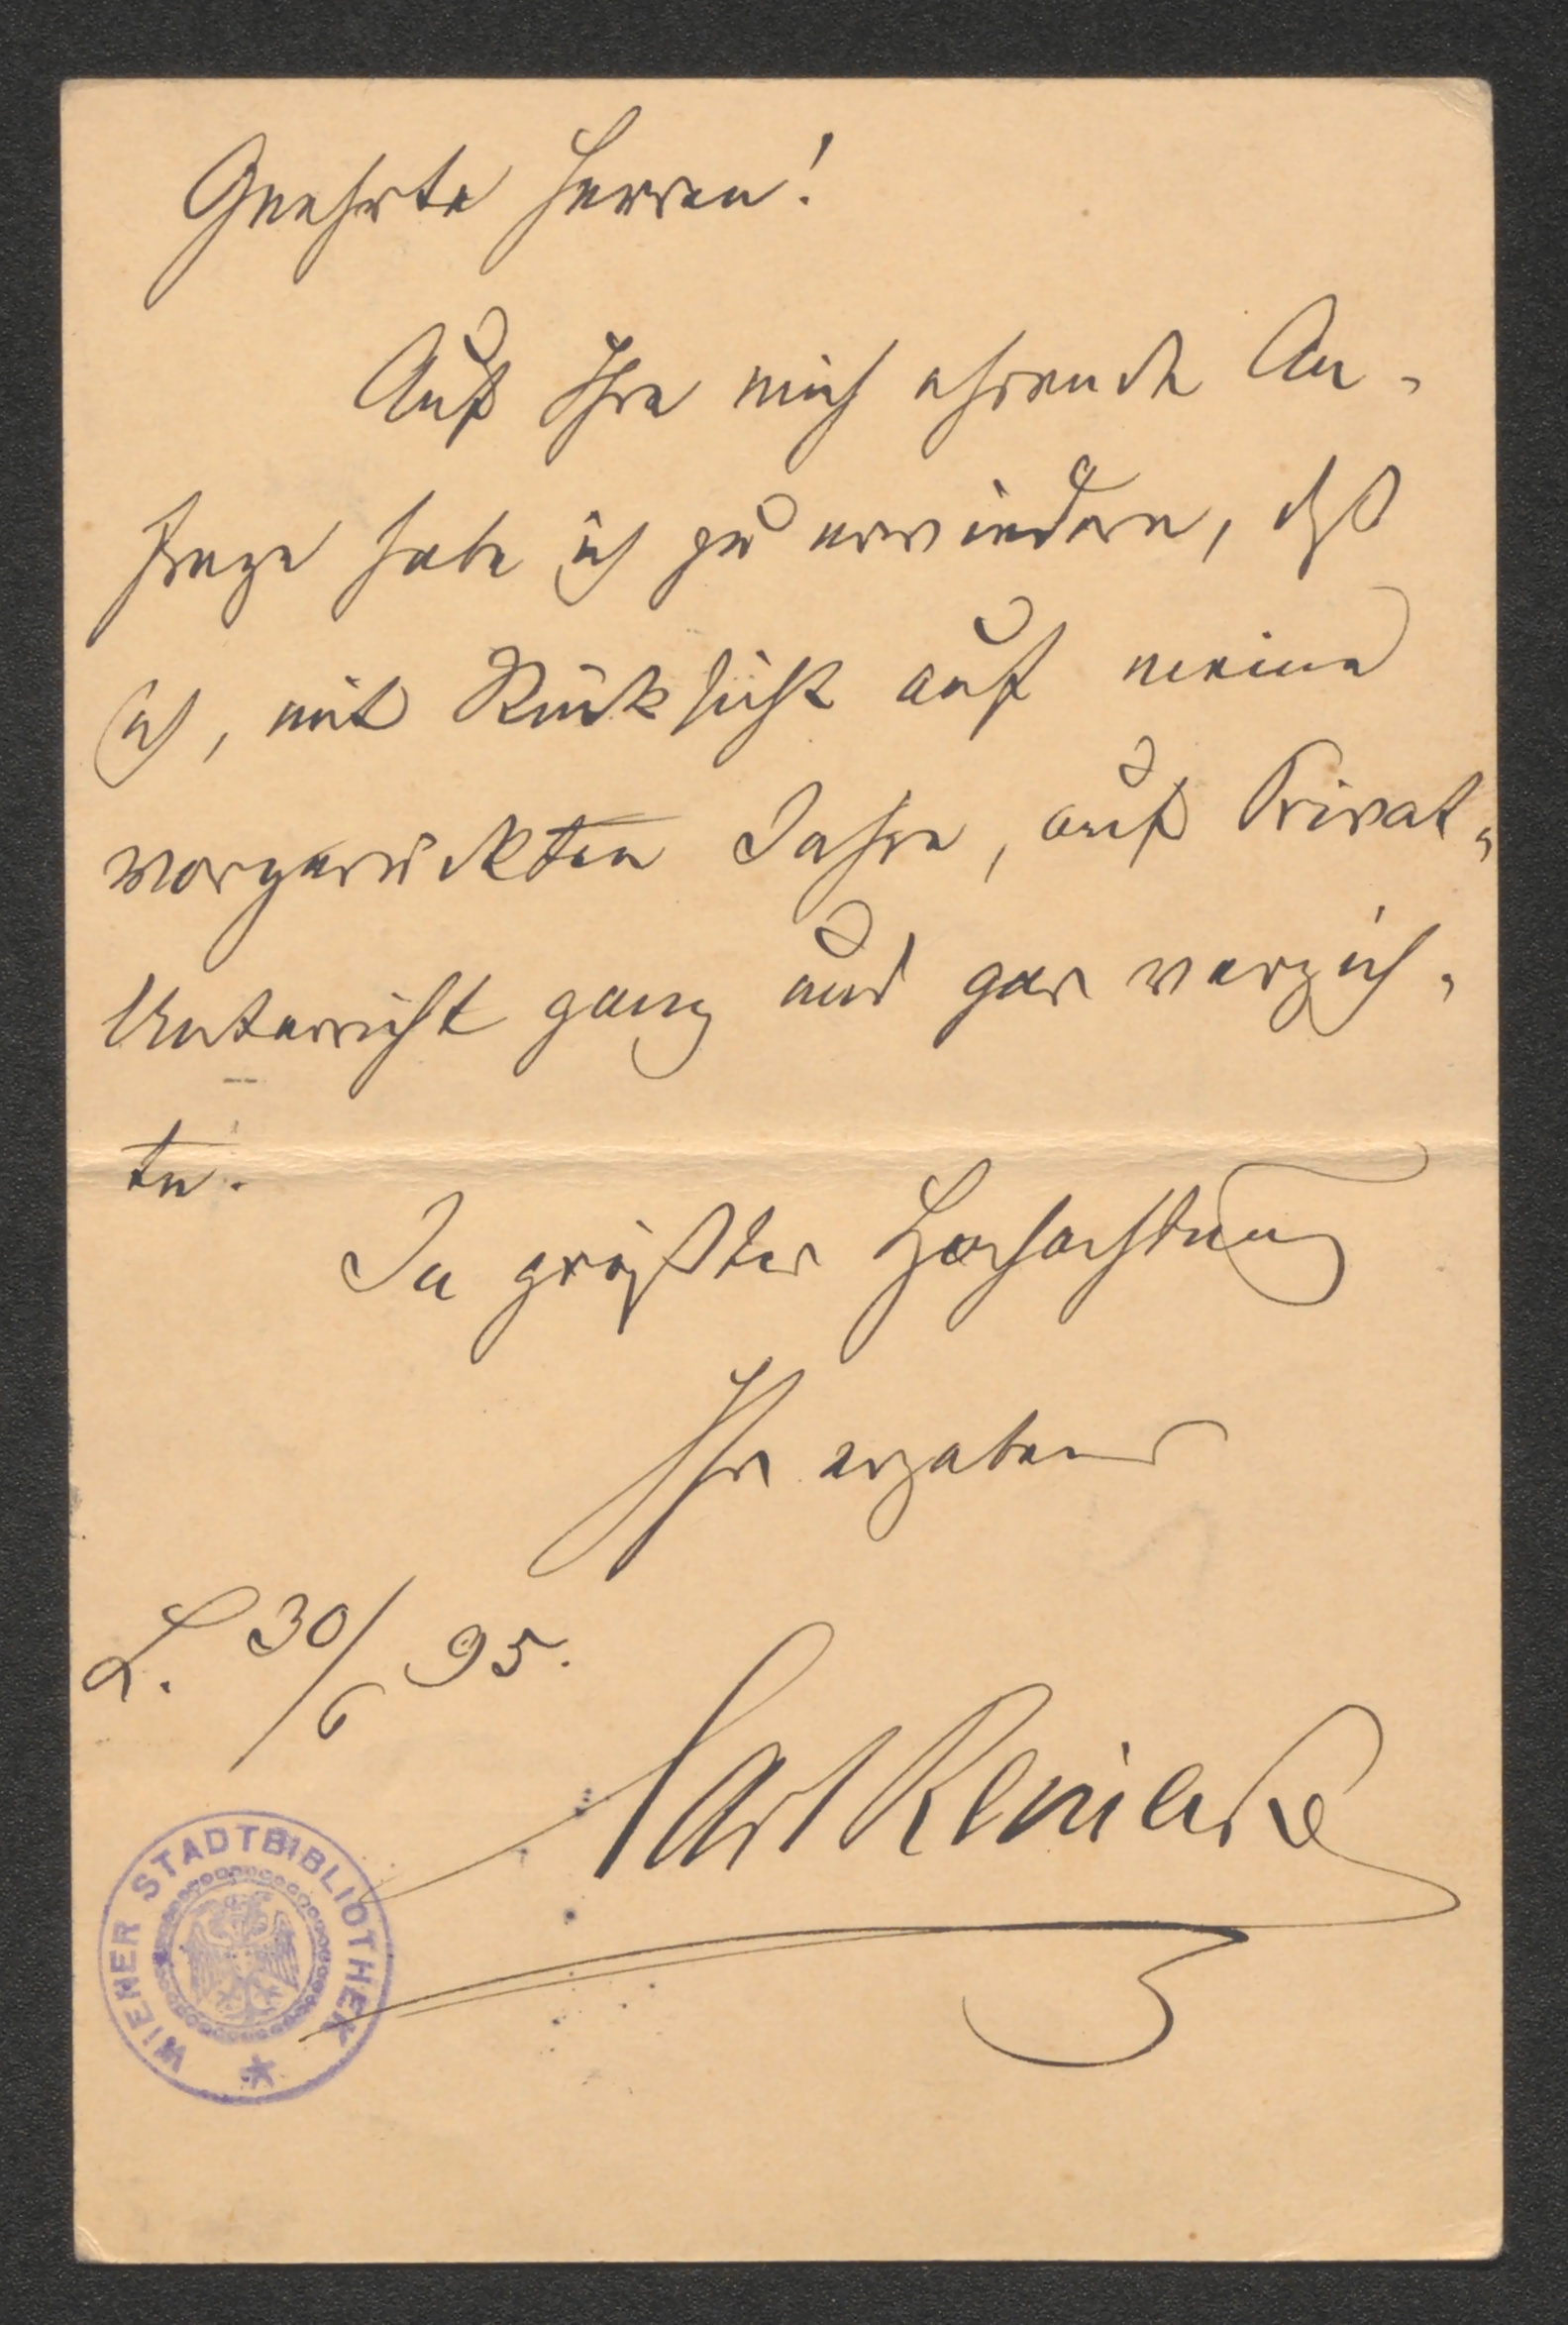 Geehrte Herren!
Auf Ihre mich ehrende An-
frage habe ich zu erwiedern, daß
ich, mit Rücksicht auf meine
vorgerückten Jahre, auf Privat-
Unterricht ganz und gar verzich-
te.
In größter Hochachtung
Ihr ergebener
L. 30/6 95.
Carl Reinecke
WIENER STADTBIBLIOTHEK